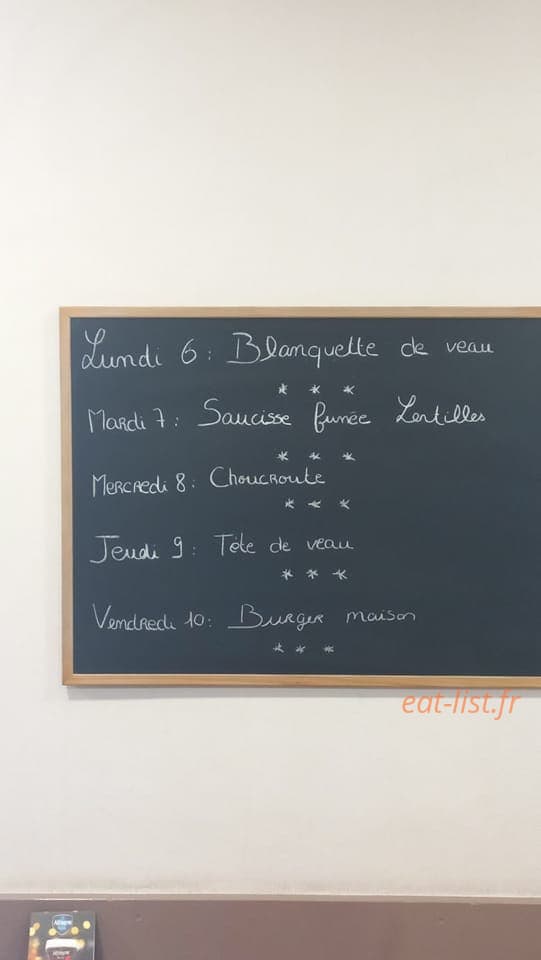 Lundi 6 : Blanquette de veau
* * *
Mardi 7 : Saucisse fumée Lentilles
* * *
Mercredi 8 : Choucroute
* * *
Jeudi 9 : Tête de veau
* * *
Vendredi 10 : Burger maison
* * *
eat-list.fr